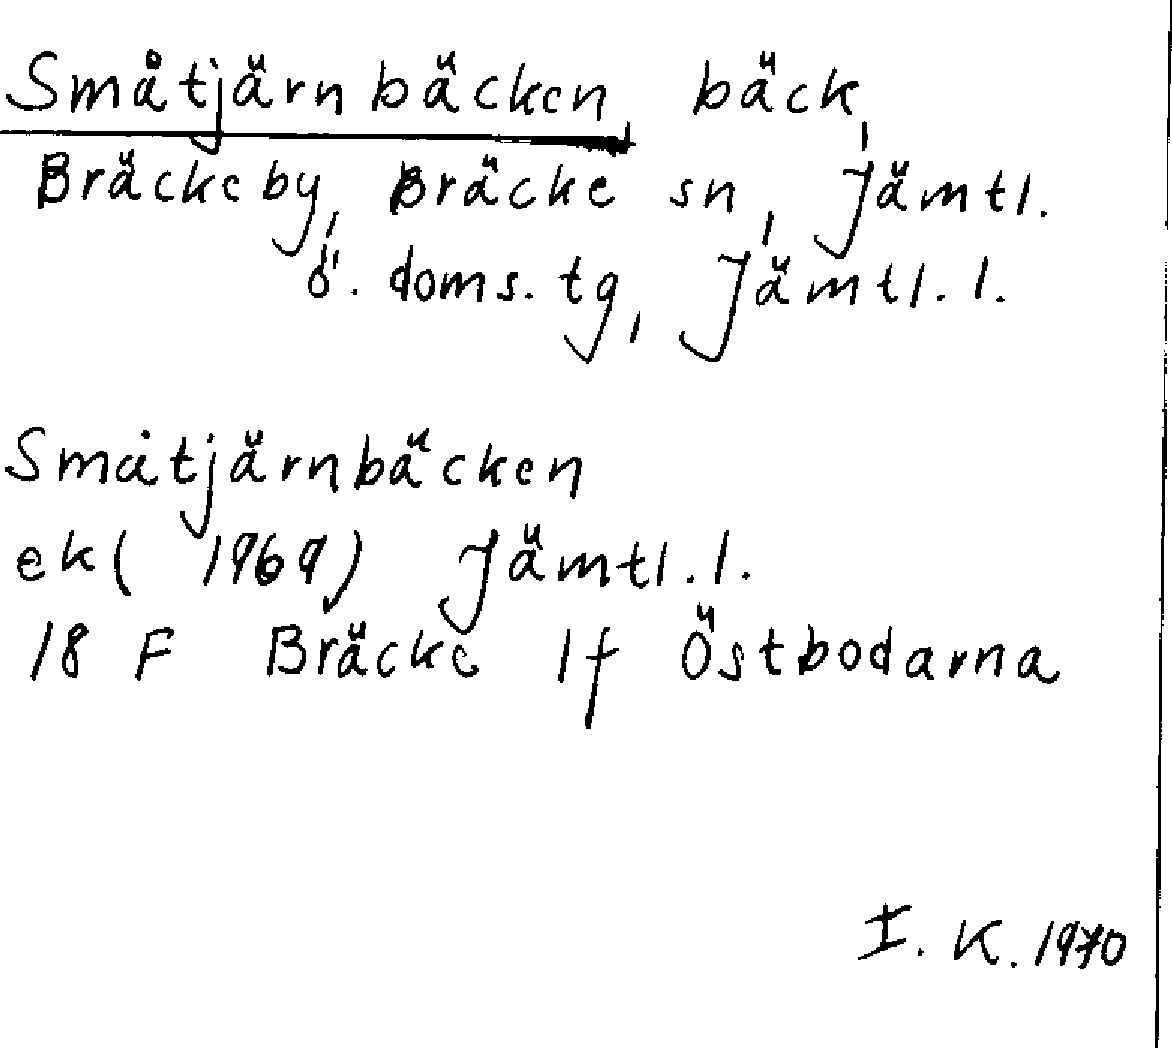 Småtjärnbäcken, bäck,
Bräcke by, Bräcke sn, Jämtl.
ö. doms. tg, Jämtl. l.
Småtjärnbäcken
ek (1969) Jämtl. l.
18 F Bräcke 1f Östbodarna
I. K. 1970